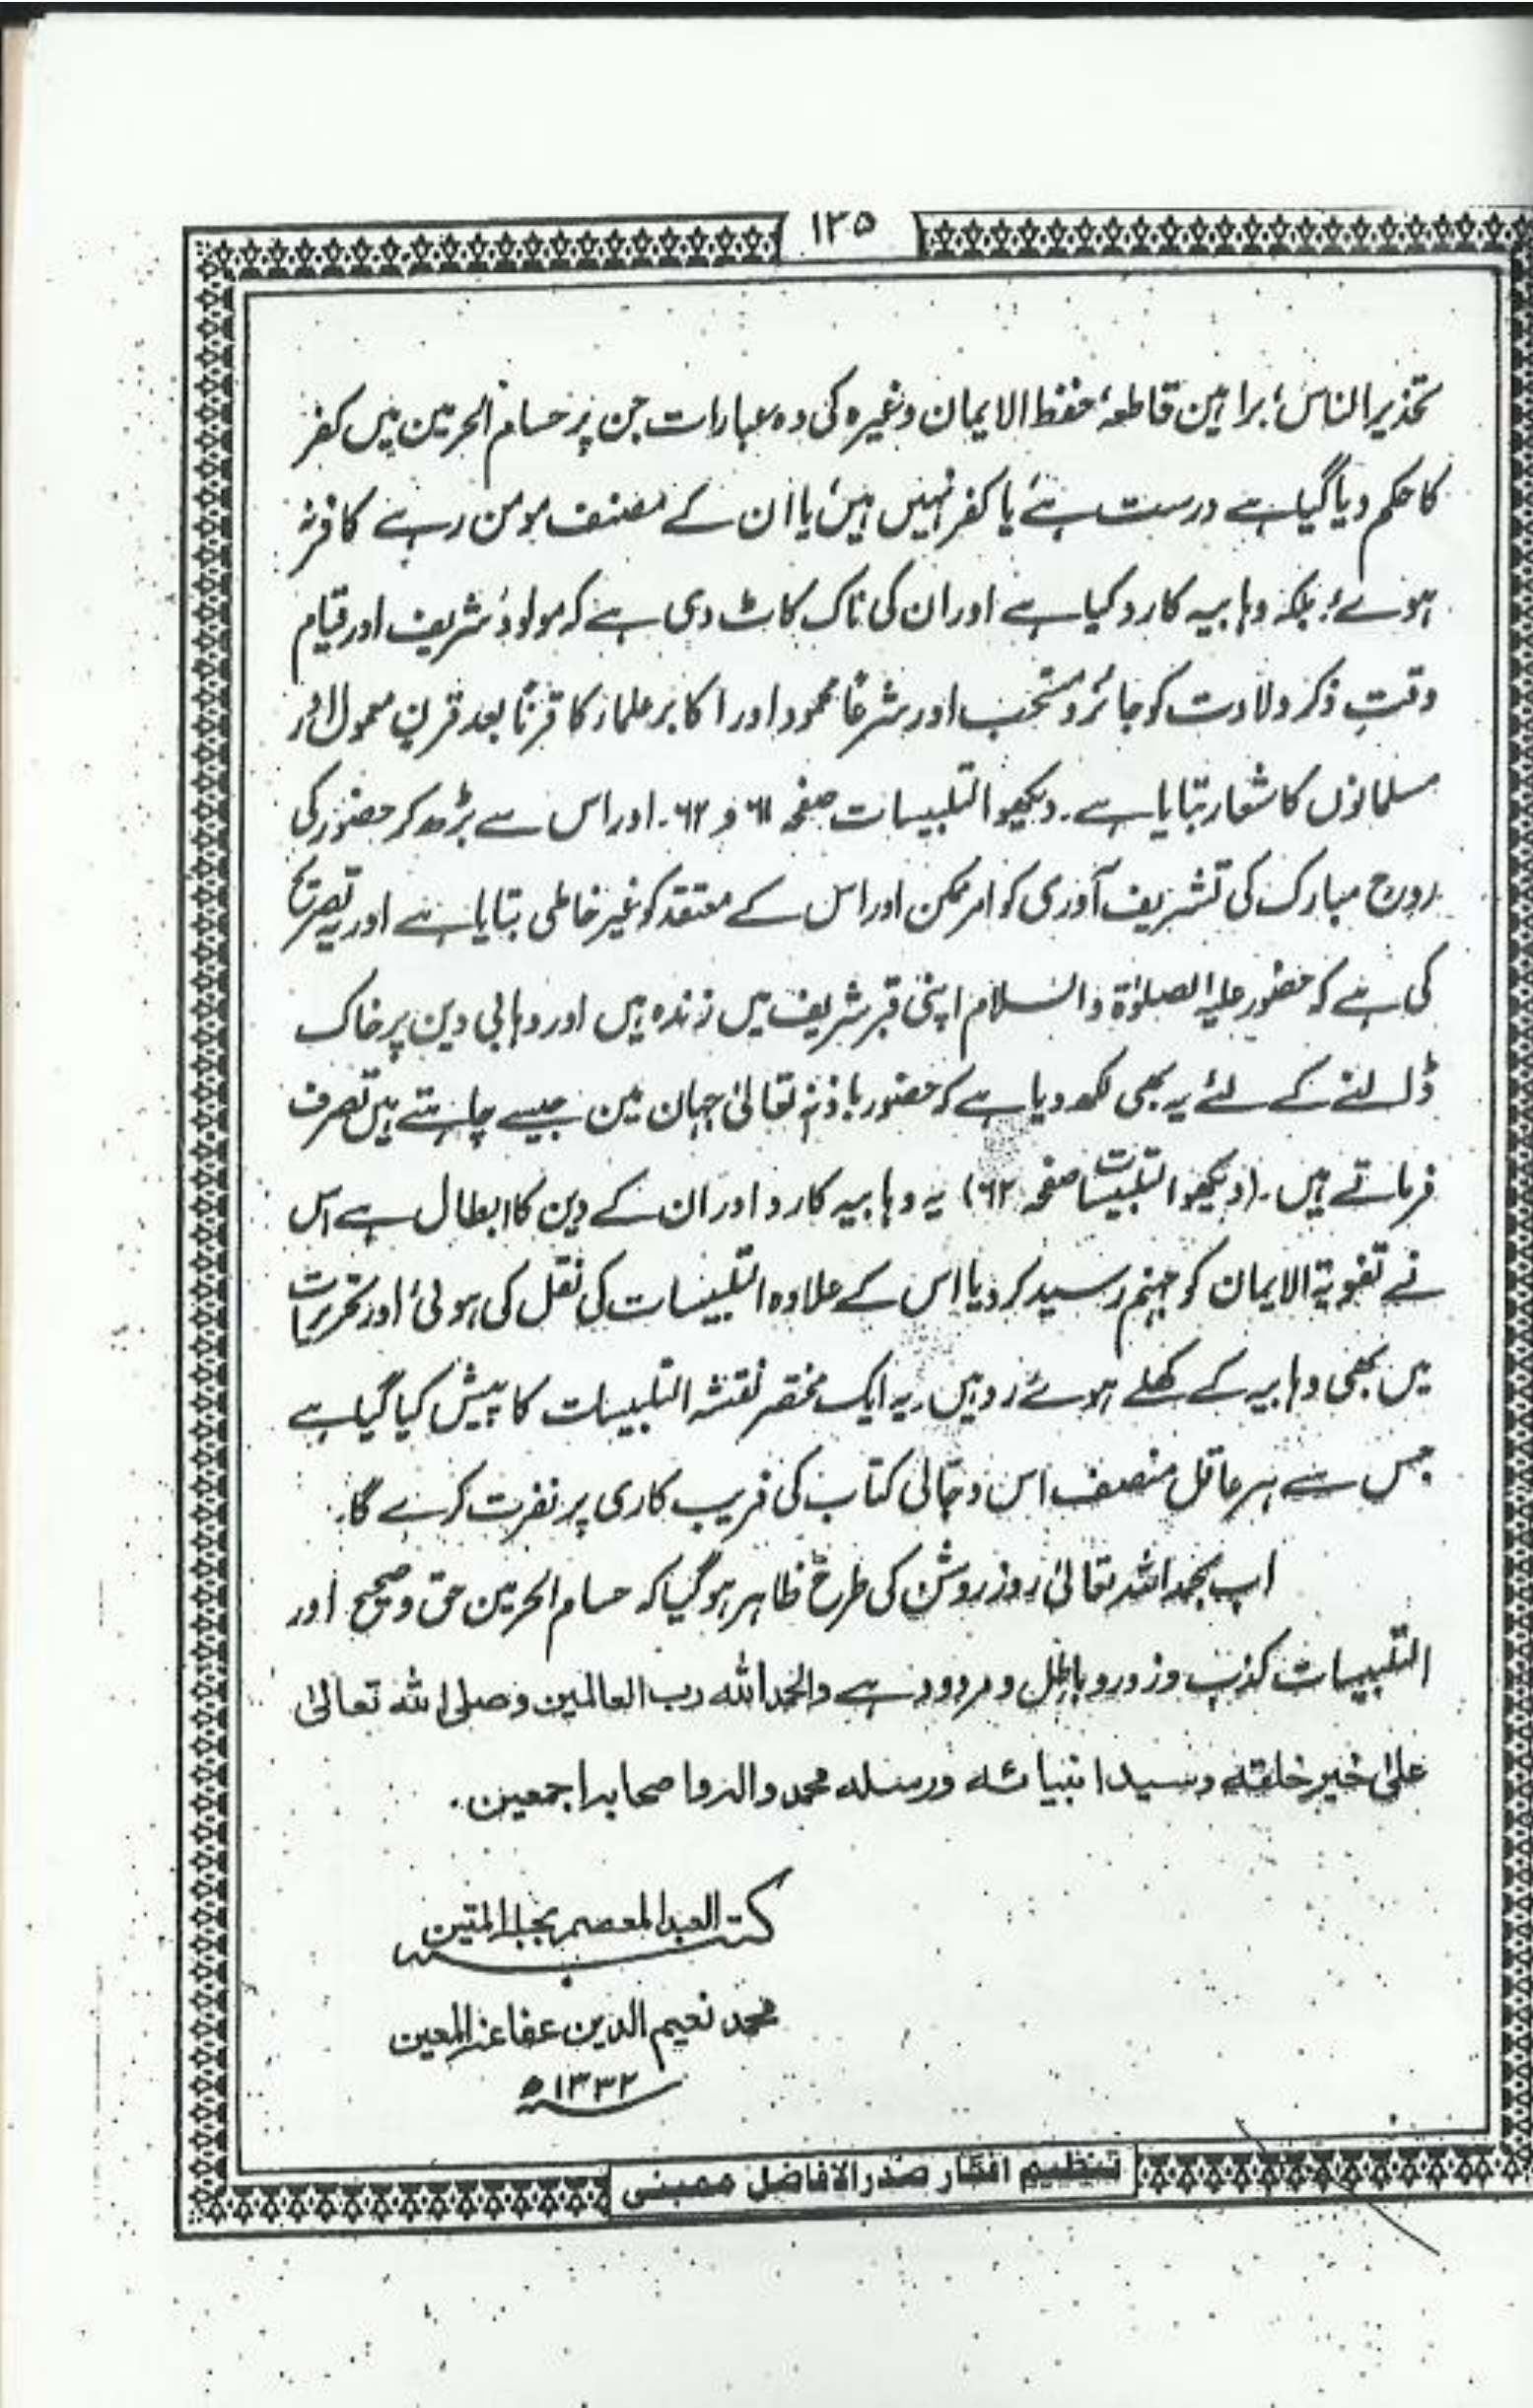 ۱۳۵
تحذیر الناس، براہین قاطعہ، حفظ الایمان وغیرہ کی وہ عبارات جن پر حسام الحرمین میں کفر
کا حکم دیا گیا ہے درست ہے یا کفر نہیں ہیں، یا ان کے مصنف مومن رہے کافر نہ
ہوئے، بلکہ وہابیہ کا رد کیا ہے اور ان کی ناک کاٹ دی ہے کہ مولود شریف اور قیام
وقتِ ذکر ولادت کو جائز و مستحب اور شرعاً محمود اور اکابر علماء کا قرناً بعد قرنٍ معمول اور
مسلمانوں کا شعار بتایا ہے۔ دیکھو التلبیسات صفحہ ۶۱ و ۶۲۔ اور اس سے بڑھ کر حضور کی
روح مبارک کی تشریف آوری کو امر ممکن اور اس کے معتقد کو غیر خاطی بتایا ہے اور یہ تصریح
کی ہے کہ حضور علیہ الصلوٰۃ والسلام اپنی قبر شریف میں زندہ ہیں اور وہابی دین پر خاک
ڈالنے کے لئے یہ بھی لکھ دیا ہے کہ حضور باذنہٖ تعالیٰ جہان میں جیسے چاہتے ہیں تصرف
فرماتے ہیں۔ (دیکھو التلبیسات صفحہ ۶۲) یہ وہابیہ کا رد اور ان کے دین کا ابطال ہے اس
نے تفویۃ الایمان کو جہنم رسید کر دیا اس کے علاوہ التلبیسات کی نقل کی ہوئی اور تحریرات
میں بھی وہابیہ کے کھلے ہوئے رد ہیں۔ یہ ایک مختصر نقشہ التلبیسات کا پیش کیا گیا ہے
جس سے ہر عاقل منصف اس دجالی کتاب کی فریب کاری پر نفرت کرے گا۔
اب بحمد اللہ تعالیٰ روز روشن کی طرح ظاہر ہو گیا کہ حسام الحرمین حق و صحیح اور
التلبیسات کذب و زور و باطل و مردود ہے والحمد اللہ رب العالمین وصلی اللہ تعالیٰ
علیٰ خیر خلقہ وسید انبیائہ ورسلہ محمد والہ واصحابہ اجمعین۔
کتبہ العبد المعتصم بحبلہ المتین
محمد نعیم الدین عفا عنہ المعین
۱۳۳۲ھ
تنظیم افکار صدر الافاضل ممبئی